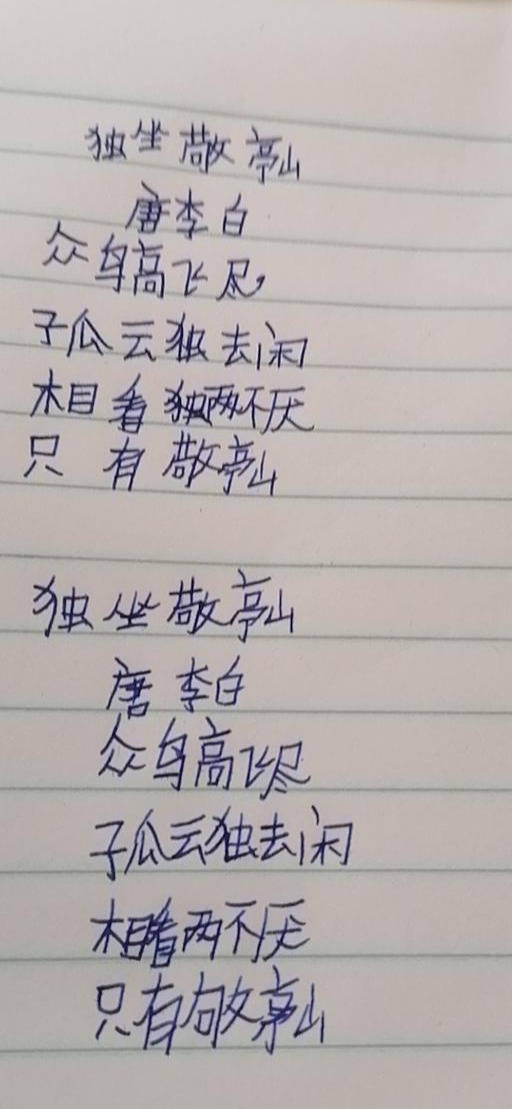 独坐敬亭山
唐李白
众鸟高飞尽
子瓜云独去闲
相看独两不厌
只有敬亭山
独坐敬亭山
唐李白
众鸟高飞尽
子瓜云独去闲
相看两不厌
只有敬亭山